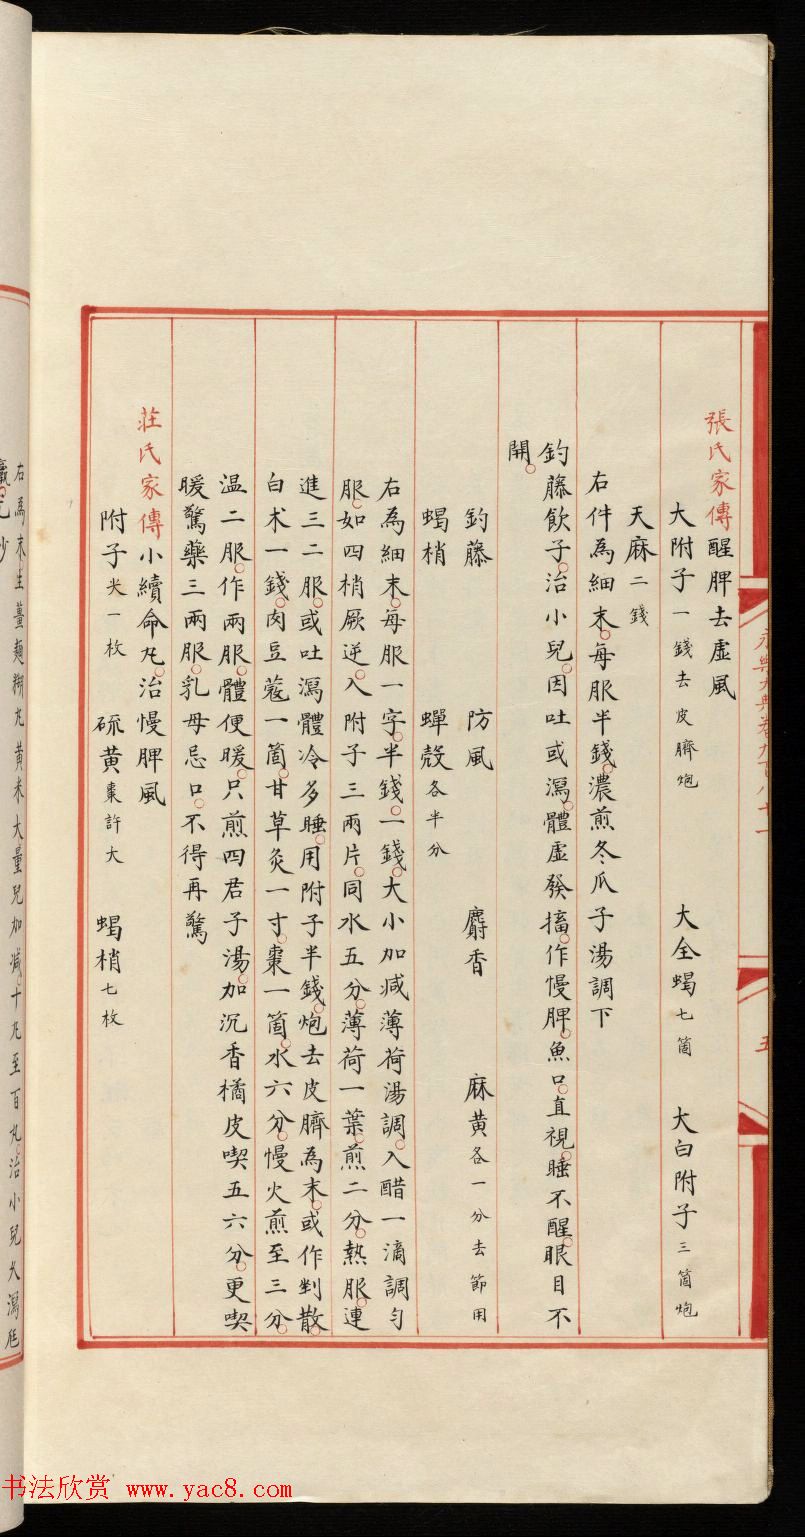 張氏家傳醒脾去虛風
大附子一錢去皮臍炮 大全蝎七箇 大白附子三箇炮
天麻二錢
右件為細末。每服半錢。濃煎冬瓜子湯調下
釣藤飲子。治小兒。因吐或瀉。體虛發搐。作慢脾。魚口。直視。睡不醒。眼目不
開。
釣藤 防風 麝香 麻黃各一分去節用
蝎梢 蟬殼各半分
右為細末。每服一字。半錢。一錢。大小加减薄荷湯調。入醋一滴調勻
服。如四梢厥逆。入附子三兩片。同水五分。薄荷一葉。煎二分。熱服。連
進三二服。或吐瀉體冷多睡。用附子半錢。炮去皮臍為末。或作剉散。
白朮一錢。肉豆蔻一箇。甘草炙一寸。棗一箇。水六分。慢火煎至三分。
温二服。作兩服。體便暖。只煎四君子湯。加沉香橘皮喫五六分。更喫
暖驚藥三兩服。乳母忌口。不得再驚
莊氏家傳小續命丸。治慢脾風
附子大一枚 硫黃棗許大 蝎梢七枚
永樂大典卷九百八十一
五
右為末生薑麵糊丸黃米大量兒加減。十丸至百丸。治小兒久瀉尪
羸。
书法欣赏 www.yac8.com